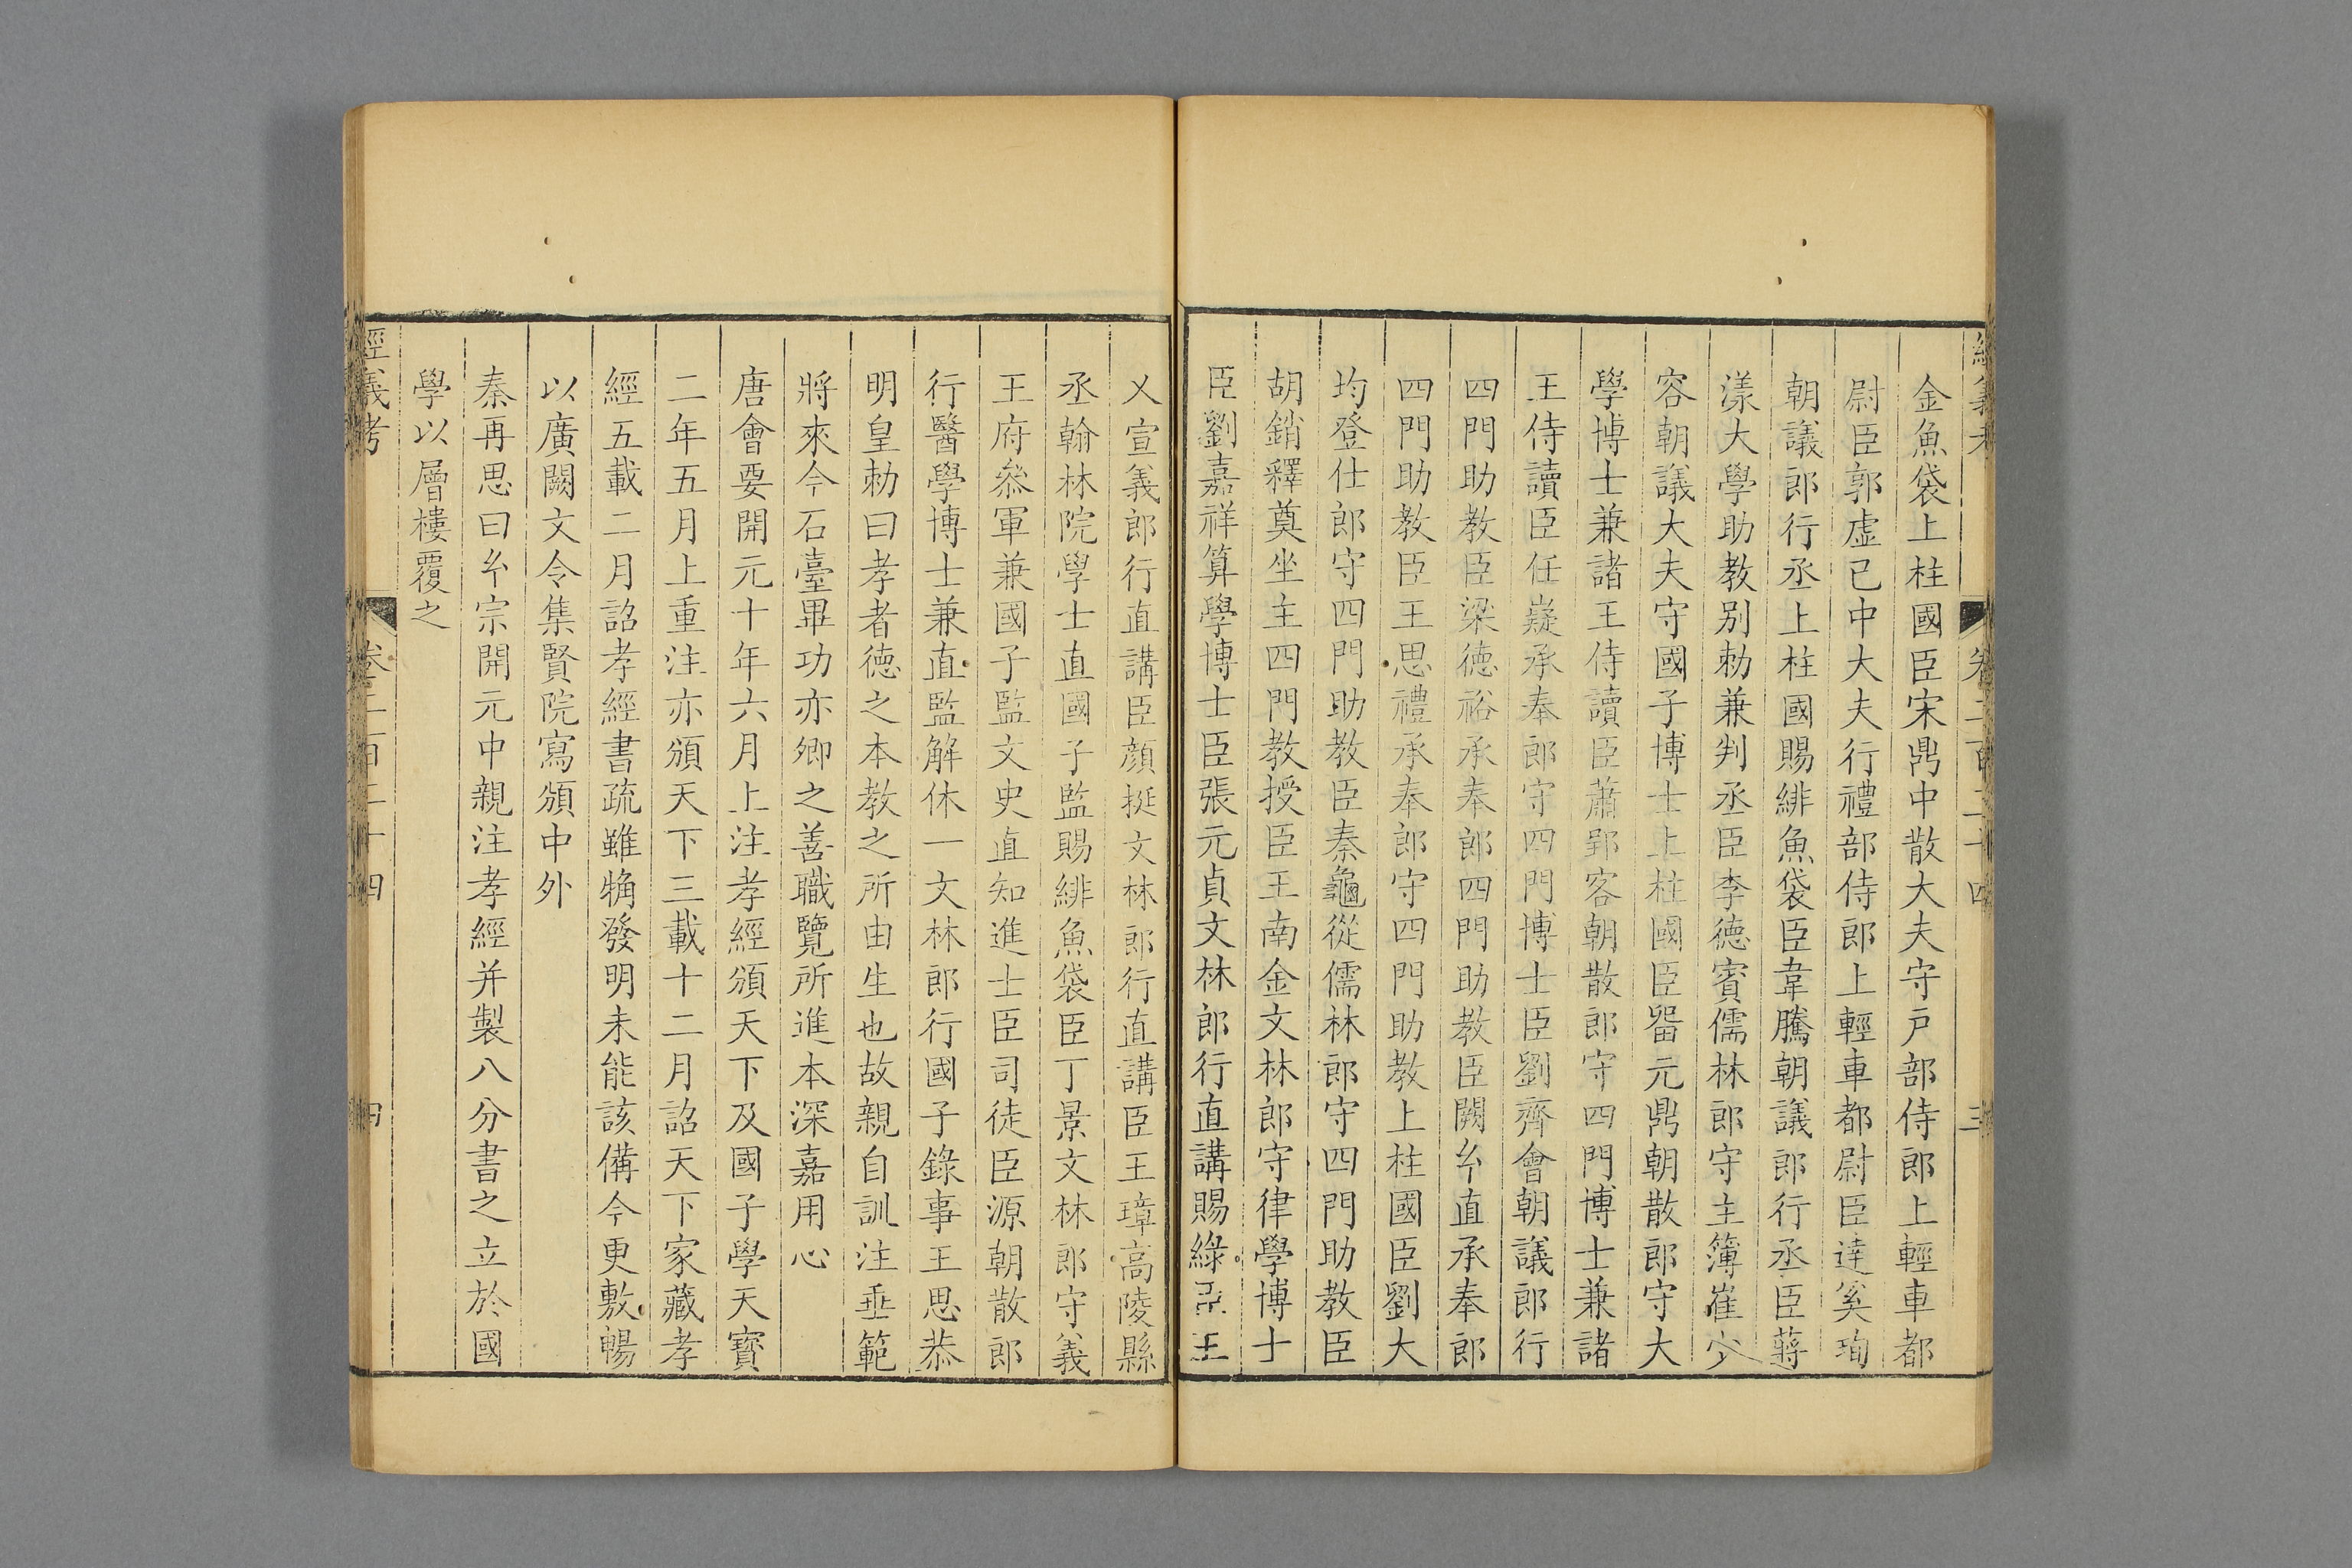 經義考
卷二百二十四
三
金魚袋上柱國臣宋鼎中散大夫守戸部侍郎上輕車都
尉臣郭虛已中大夫行禮部侍郎上輕車都尉臣達奚珣
朝議郎行丞上柱國賜緋魚袋臣韋騰朝議郎行丞臣蔣
漾大學助教別勑兼判丞臣李徳賓儒林郎守主簿崔少
容朝議大夫守國子博士上柱國臣畱元鼎朝散郎守大
學博士兼諸王侍讀臣蕭郢客朝散郎守四門博士兼諸
王侍讀臣任嶷承奉郎守四門博士臣劉齊會朝議郎行
四門助教臣梁徳裕承奉郎四門助教臣闕㣲直承奉郎
四門助教臣王思禮承奉郎守四門助教上柱國臣劉大
均登仕郎守四門助教臣秦龜從儒林郎守四門助教臣
胡銷釋奠坐主四門教授臣王南金文林郎守律學博士
臣劉嘉祥算學博士臣張元貞文林郎行直講賜綠臣王
乂宣義郎行直講臣顔挺文林郎行直講臣王璋高陵縣
丞翰林院學士直國子監賜緋魚袋臣丁景文林郎守義
王府叅軍兼國子監文史直知進士臣司徒臣源朝散郎
行醫學博士兼直監解休一文林郎行國子錄事王思恭
明皇勑曰孝者徳之本教之所由生也故親自訓注垂範
將來今石臺畢功亦卿之善職覽所進本深嘉用心
唐會要開元十年六月上注孝經頒天下及國子學天寳
二年五月上重注亦頒天下三載十二月詔天下家藏孝
經五載二月詔孝經書疏雖觕發明未能該備今更敷暢
以廣闕文令集賢院寫頒中外
秦再思曰𤣥宗開元中親注孝經并製八分書之立於國
學以層樓覆之
經義考
卷二百二十四
四